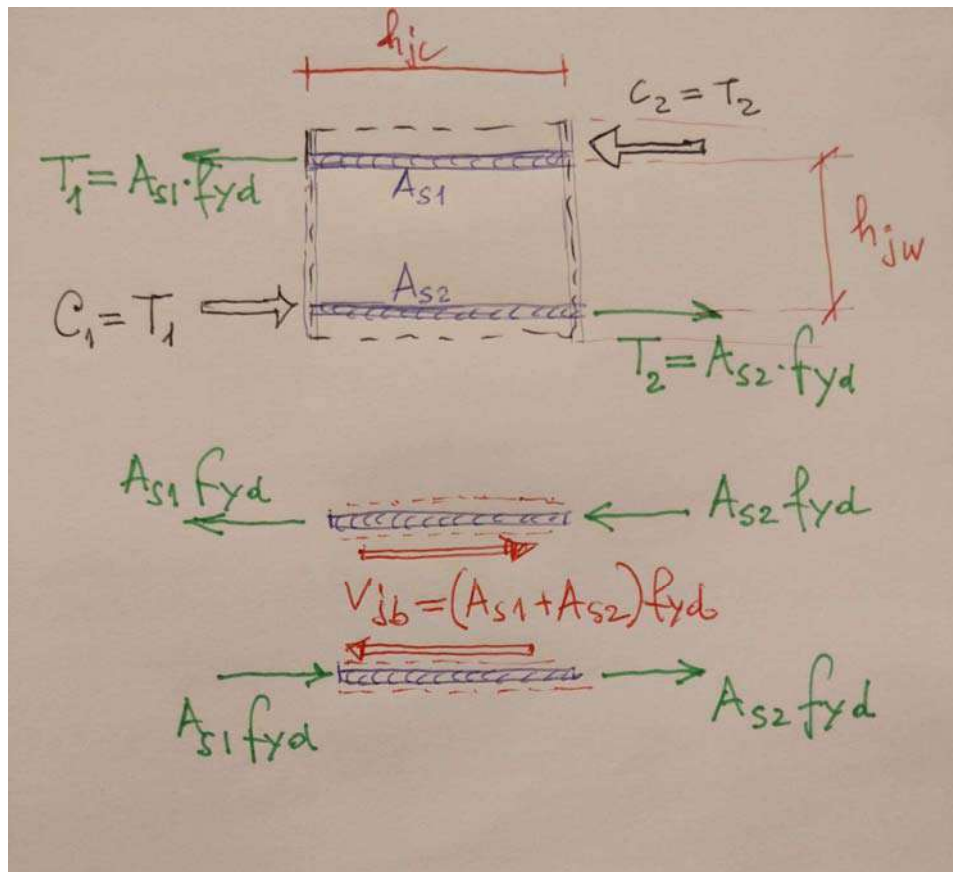 hjc
C2 = T2
T1 = As1·fyd
As1
hjw
As2
C1 = T1
T2 = As2·fyd
As1 fyd
As2 fyd
Vjb = (As1 + As2) fyd
As1 fyd
As2 fyd